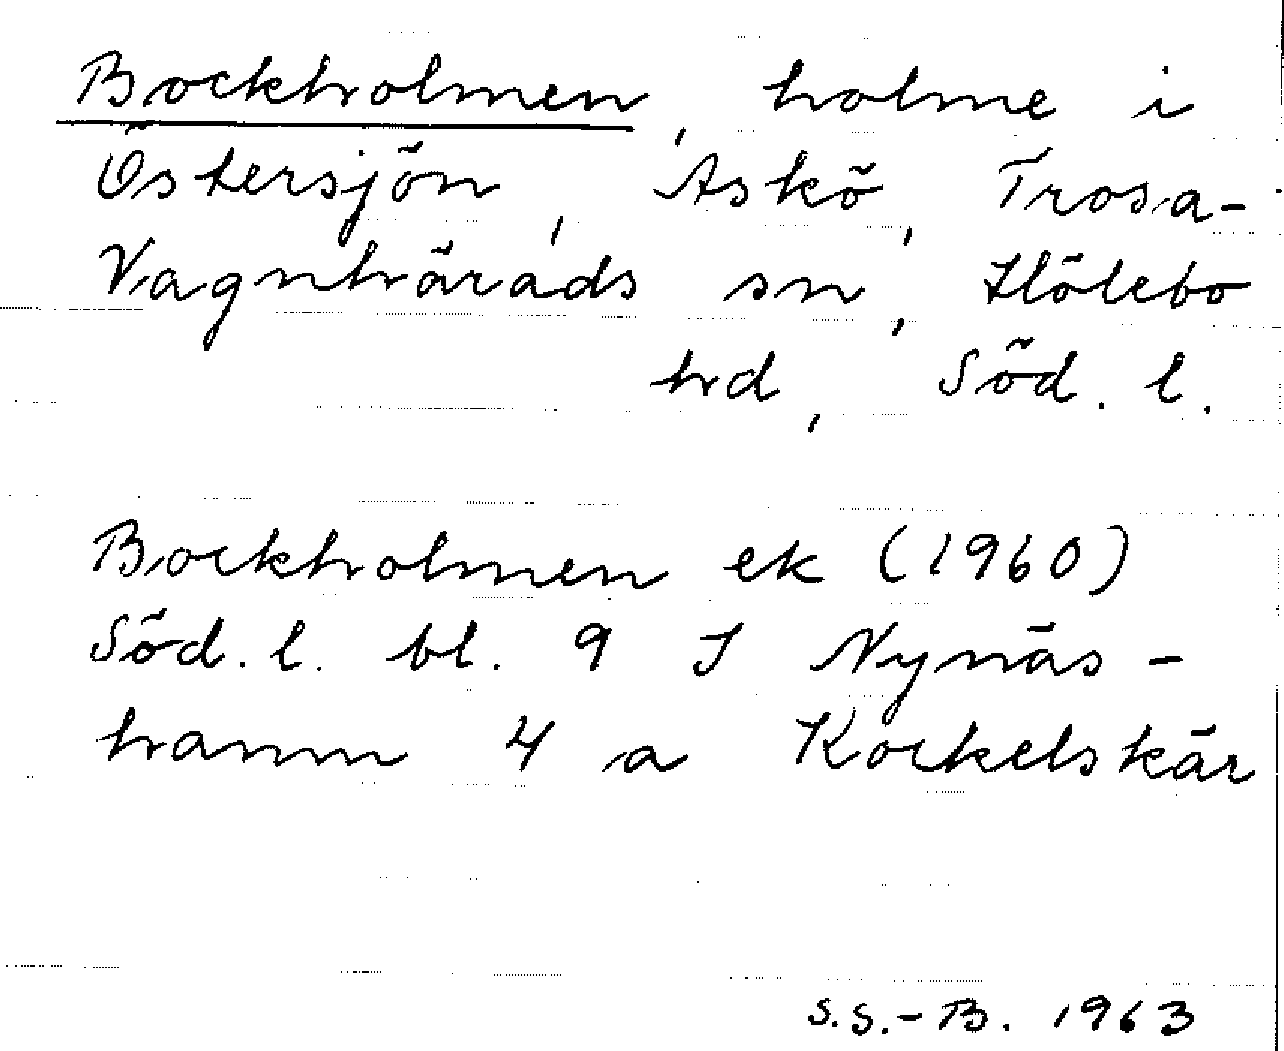 Bockholmen, holme i
Östersjön, Askö, Trosa-
Vagnhärads sn, Hölebo
hrd, Söd. l.
Bockholmen ek (1960)
Söd. l. bl. 9 J Nynäs-
hamn 4 a Kockelskär
S.S.-B. 1963